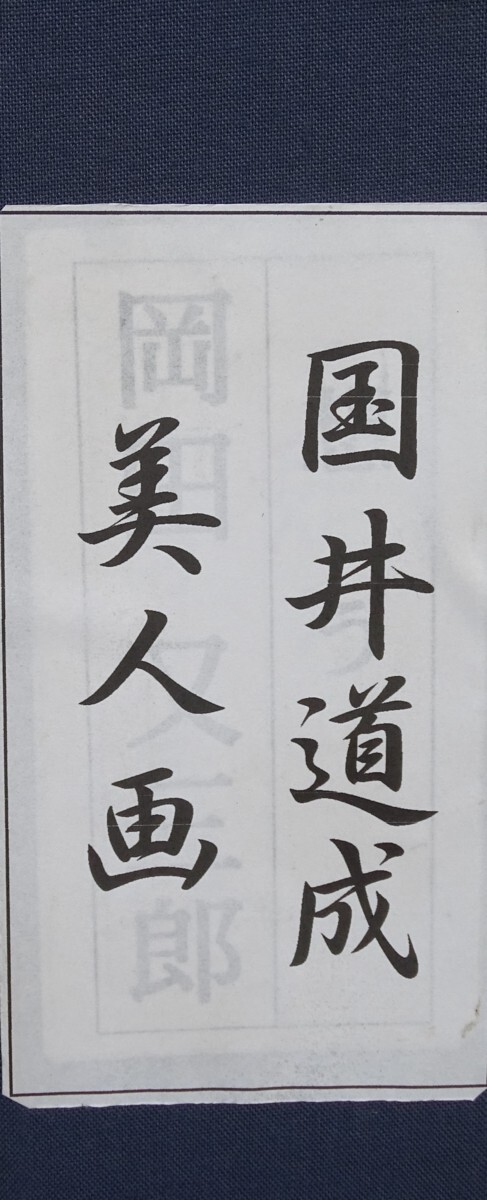 国井道成
美人画